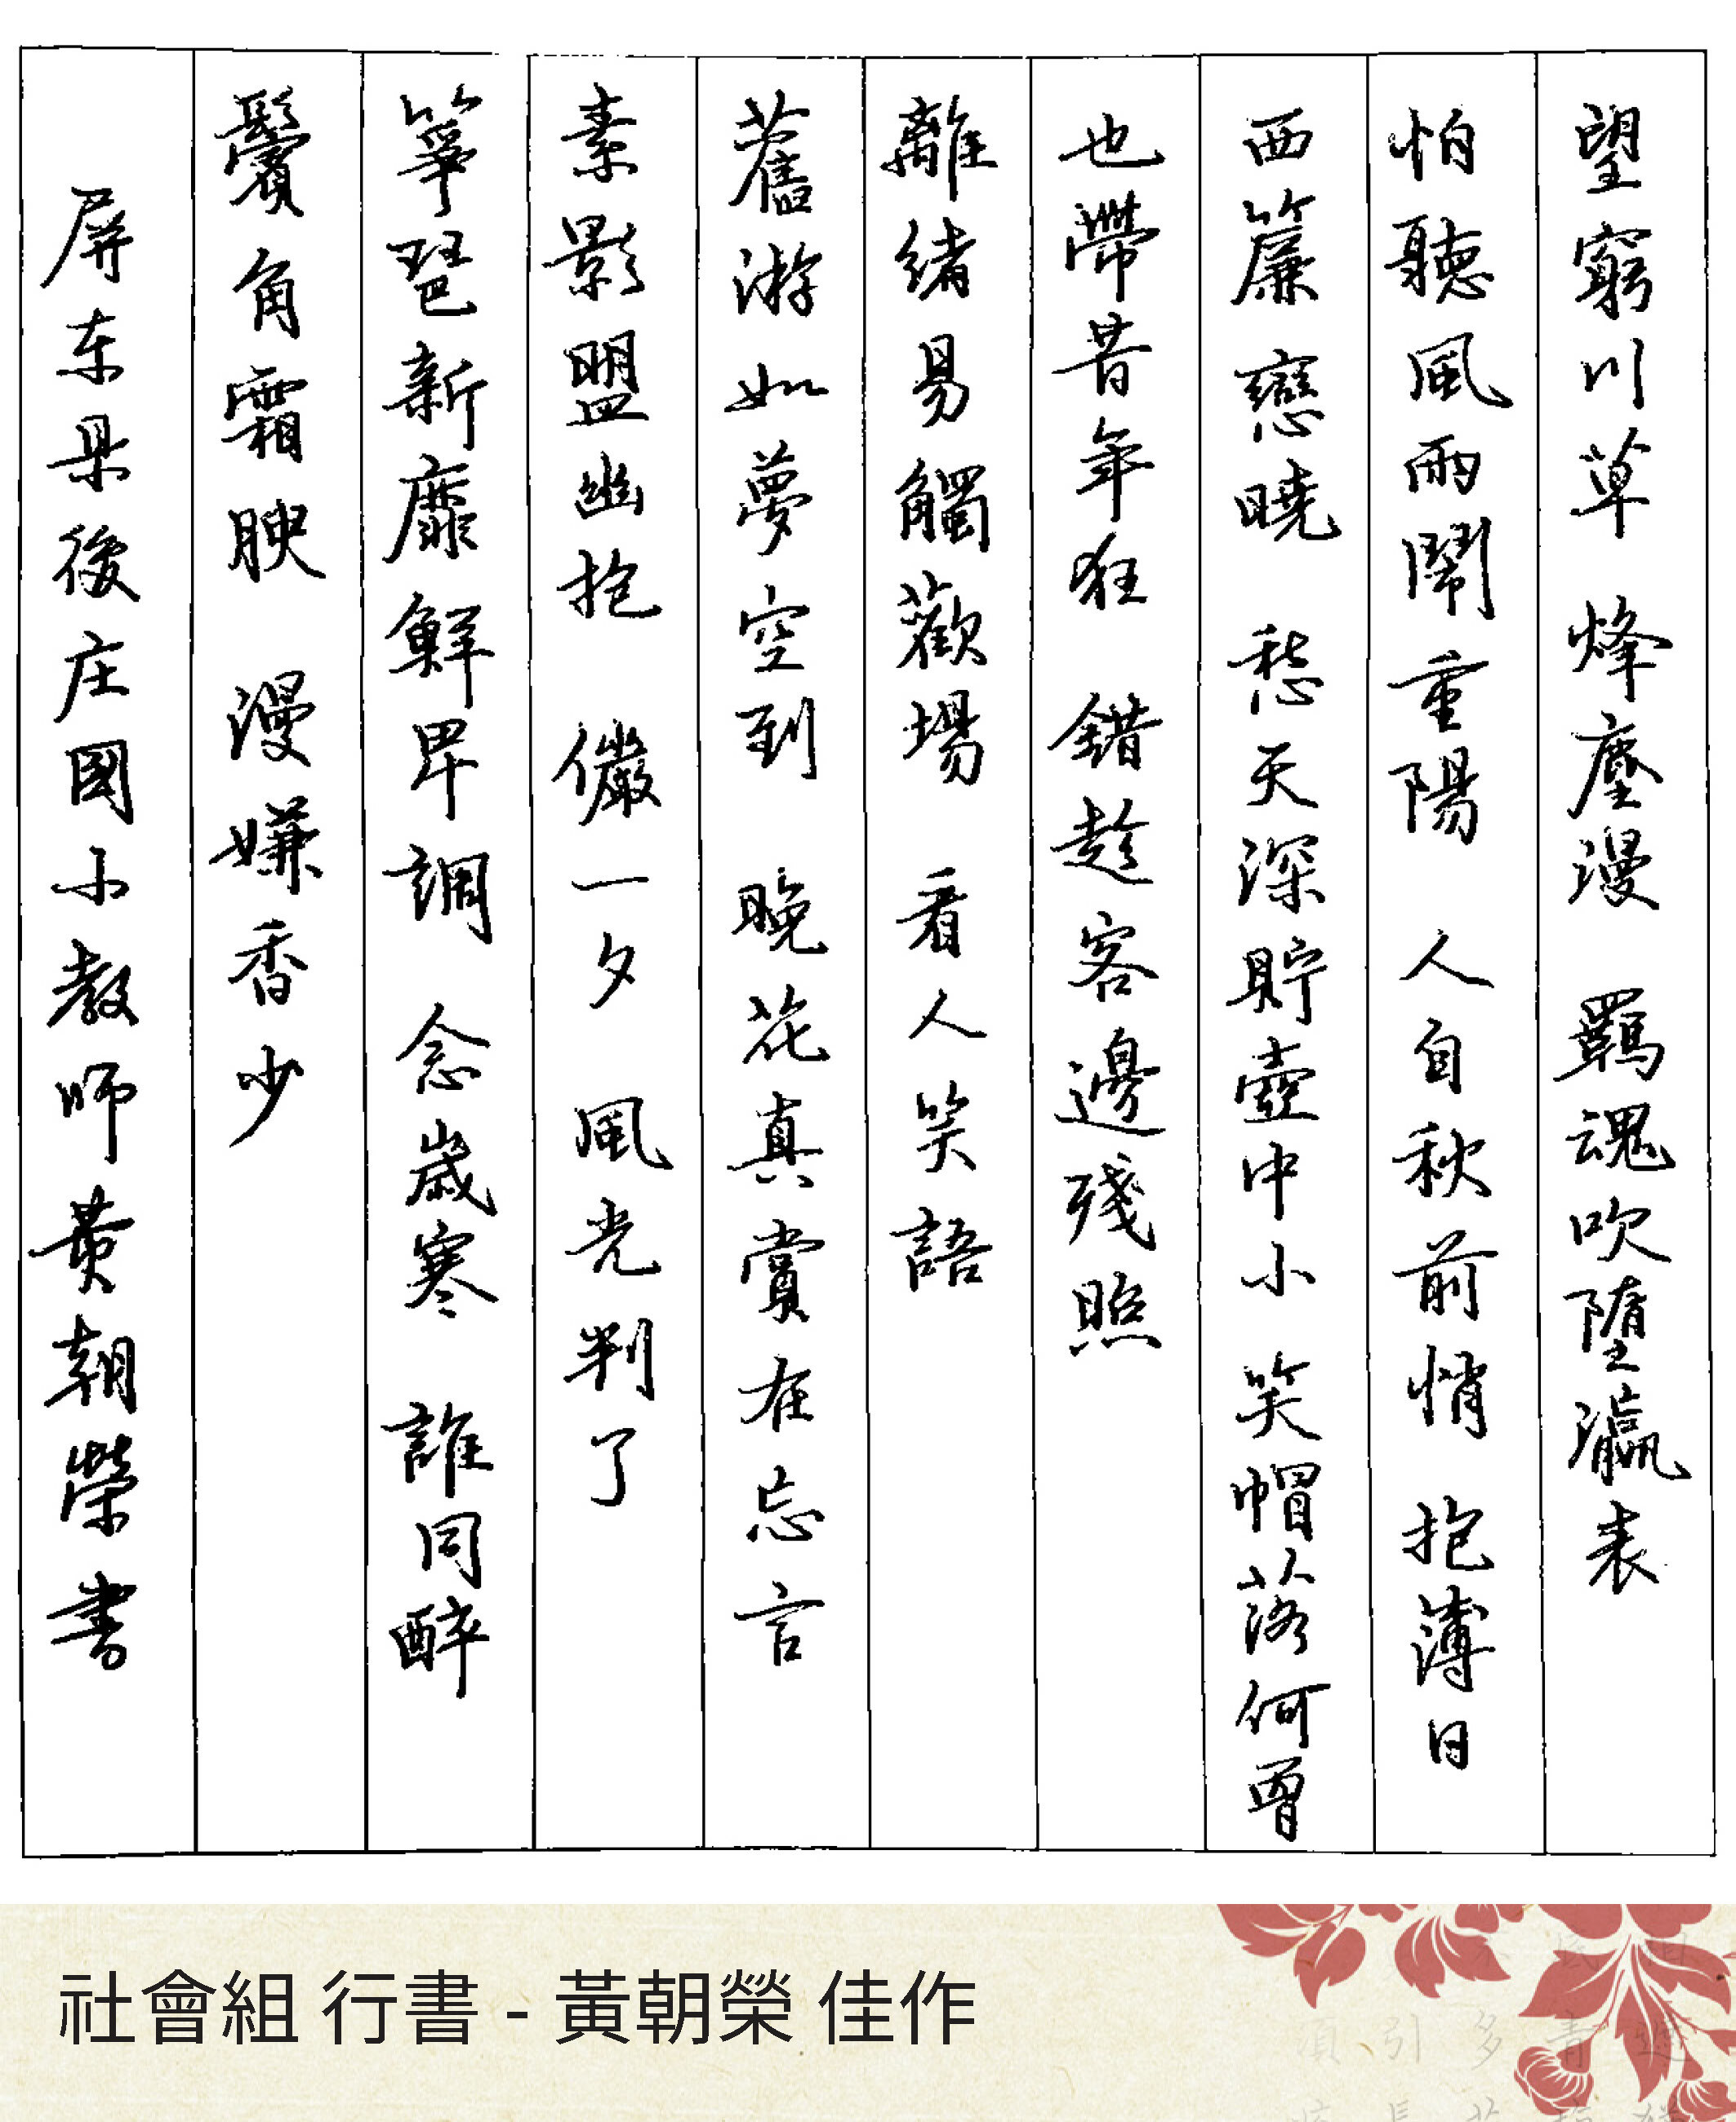 望窮川草 烽塵漫 羈魂吹墮瀛表
怕聽風雨鬧重陽 人自秋前悄 抱薄日
西簾戀曉 愁天深貯壺中小 笑帽落何曾
也帶昔年狂 錯趁客邊殘照
離緒易觸歡場 看人笑語
舊游如夢空到 晚花真賞在忘言
素影盟幽抱 儼一夕風光判了
箏琶新靡鮮卑調 念歲寒 誰同醉
鬢角霜腴 漫嫌香少
屏东县後庄國小教师黄朝榮書
社會組 行書 - 黃朝榮 佳作